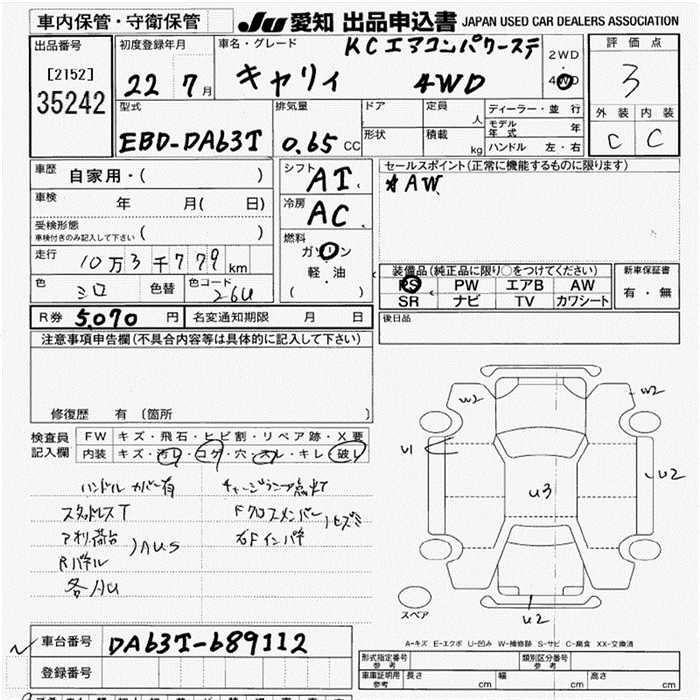 車内保管・守衛保管
JU 愛知 出品申込書 JAPAN USED CAR DEALERS ASSOCIATION
出品番号
[2152]
35242
初度登録年月
22 7月
車名・グレード
KCエアコンパワーステ
キャリィ 4WD
2WD
・
4WD
評価点
3
外装 内装
C C
型式
EBD-DA63T
排気量
0.65 CC
ドア
形状
定員 人
積載 kg
ディーラー・並行
モデル年式 年
ハンドル 左・右
車歴
自家用・( )
車検
年 月( 日)
受検形態
車検付きのみ記入して下さい ( )
走行
10万3千779km
色
シロ
色替
色コード
26U
シフト
AT
冷房
AC
燃料
ガソリン
軽・油
( )
セールスポイント(正常に機能するものに限ります)
AW
装備品(純正品に限り○をつけてください)
PS PW エアB AW
SR ナビ TV カワシート
新車保証書
有・無
R券 5,070 円
名変通知期限 月 日
後日品
注意事項申告欄(不具合内容等は具体的に記入して下さい)
修復歴 有 [箇所 ]
検査員
記入欄
FW キズ・飛石・ヒビ割・リペア跡・X要
内装 キズ・汚レ・コゲ・穴・スレ・キレ・破レ
ハンドルカバー有
スタッドレスT
アオリ荷台
Rパネル
)AU.S
各AU
チャージランプ点灯
Fクロスメンバー
右Fインパネ
)ヒズミ
W2
W2
U1
U2
U3
U2
スペア
A-キズ E-エクボ U-凹み W-補修跡 S-サビ C-腐食 XX-交換済
車台番号
DA63T-689112
登録番号
形式指定番号
参考
類別区分番号
参考
車庫証明用
参考
長さ cm
幅 cm
高さ cm